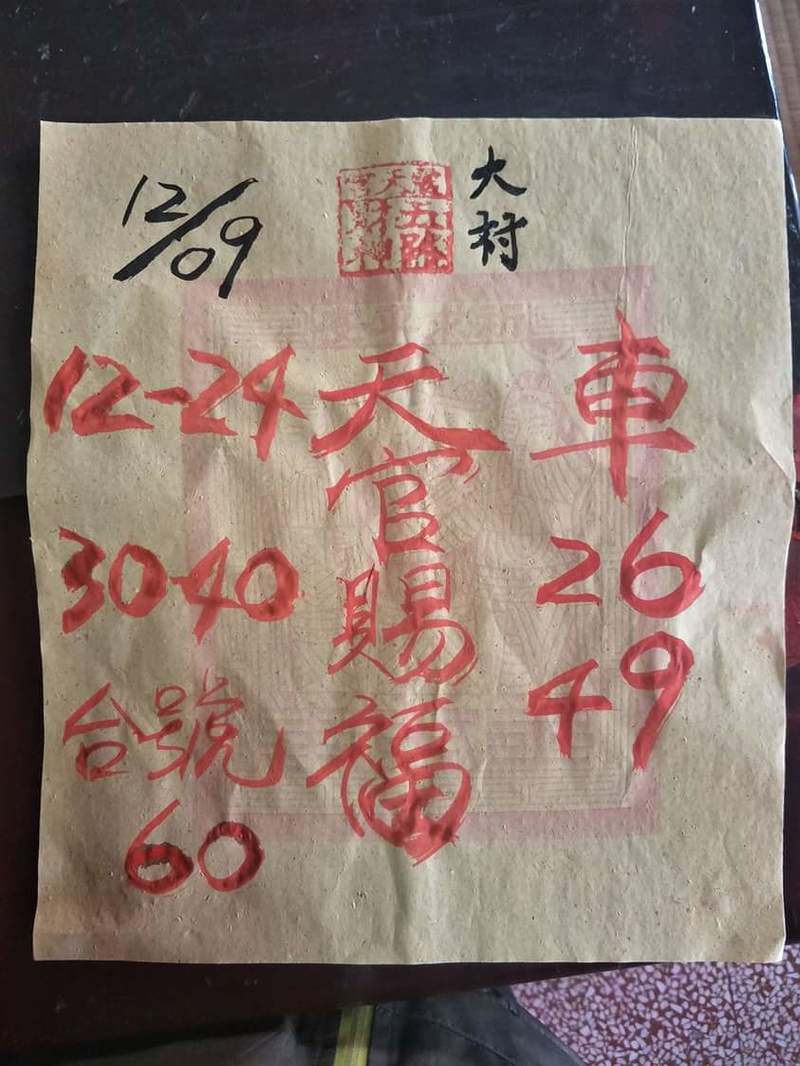 12/09
大村
天官
五路
財神
12-24
30-40
台號
60
天官賜福
車
26
49